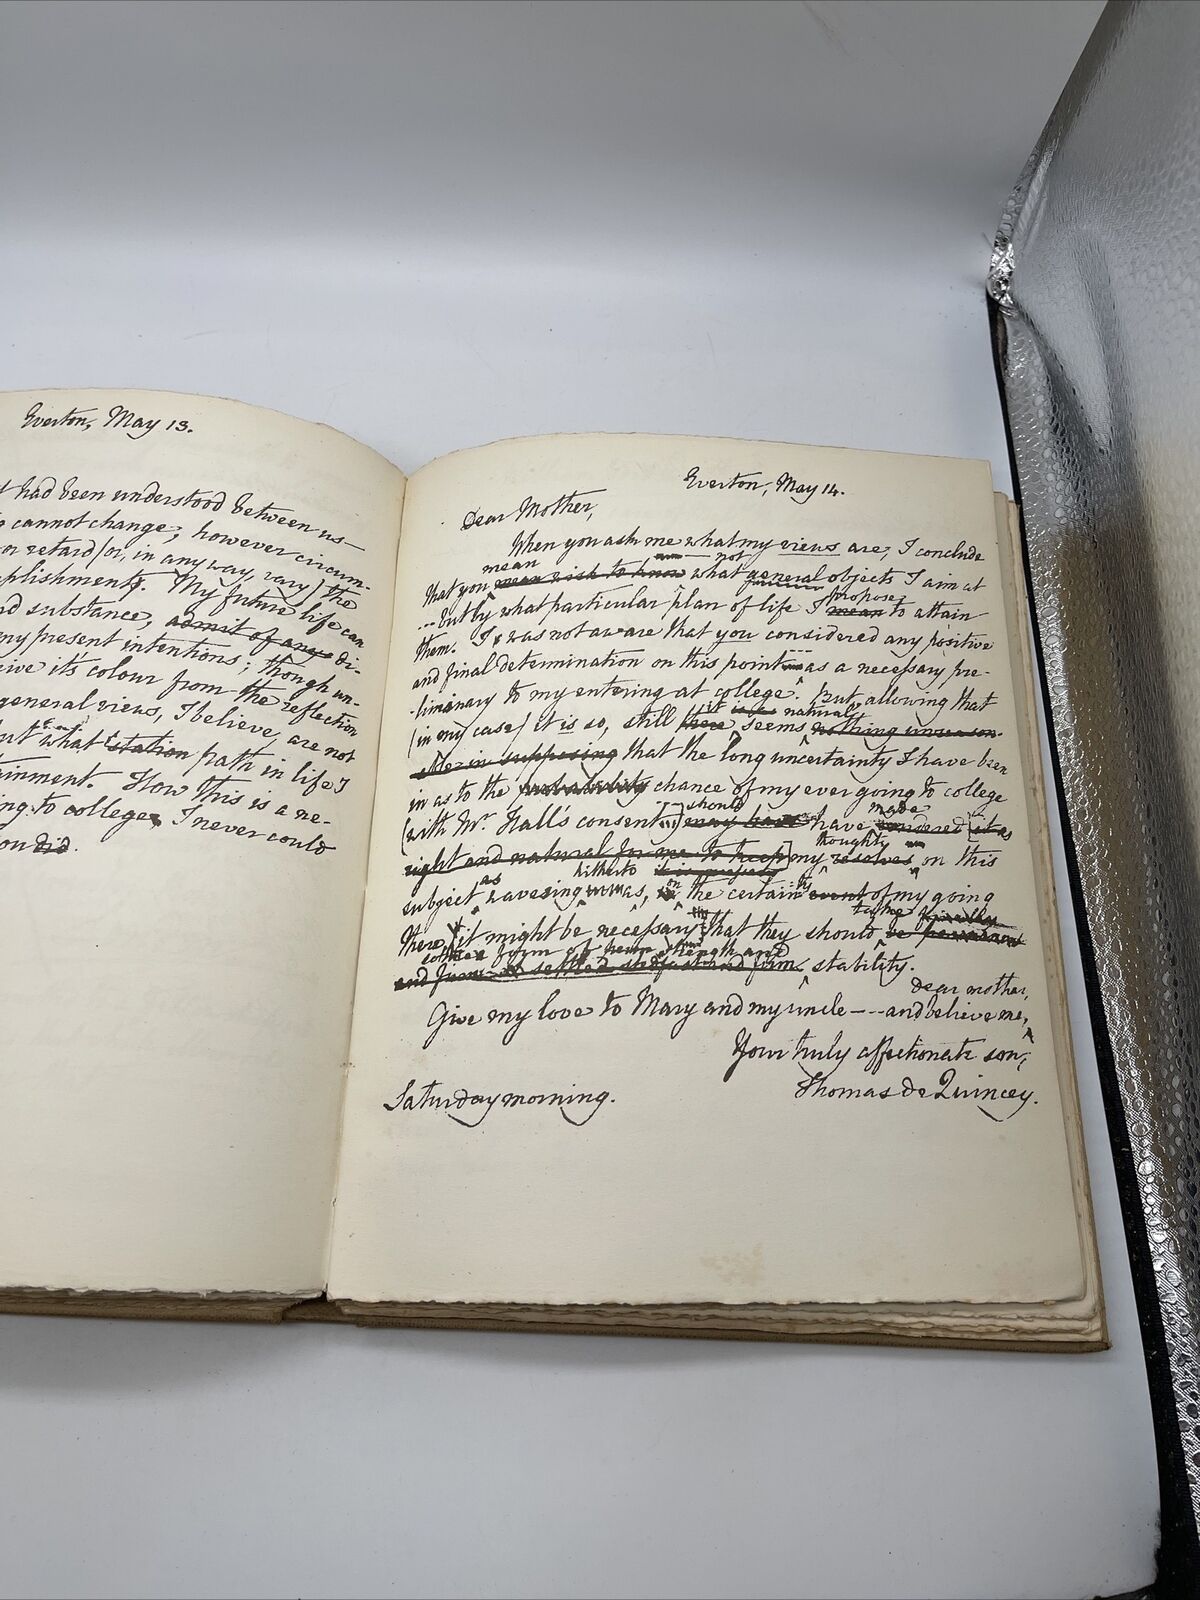 Everton, May 13.
had been understood between us—
cannot change, however circum-
or retard (or, in any way, vary) the
plishments. My future life can
d substance, admit of any di-
my present intentions; though un-
ive it's colour from the reflection
general views, I believe, are not
but what station path in life I
ainment. How this is a ne-
ing to college, I never could
ou did.
Everton, May 14.
Dear Mother,
When you ask me what my views are, I conclude
mean not
that you mean wish to know what general objects I aim at
propose
--- but by what particular plan of life I mean to attain
them. I was not aware that you considered any positive
and final determination on this point as a necessary pre-
-liminary to my entering at college. But allowing that
it is natural
(in my case) it is so, still there seems nothing unreason-
able in supposing that the long uncertainty I have been
in as to the probability chance of my ever going to college
should made
(with Mr. Hall's consent) may have have rendered it as
thoughts
right and natural for me to keep my resolves on this
as hitherto
subject wavering was, on the certainty event of my going
there it might be necessary that they should be permanent
and form settled steadfast and firm stability.
dear mother,
Give my love to Mary and my uncle --- and believe me,
Your truly affectionate son,
Thomas de Quincey.
Saturday morning.